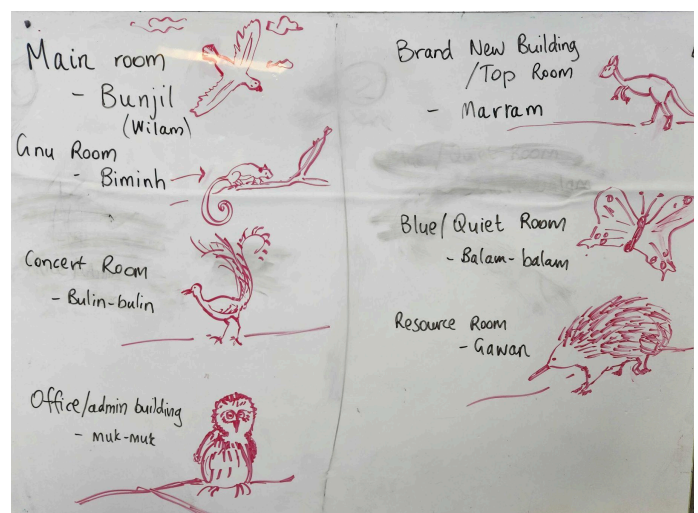 Main room
- Bunjil
(Wilam)
Gnu Room
- Biminh
Concert Room
- Bulin-bulin
Office/admin building
- muk-muk
Brand New Building
/Top Room
- Marram
Blue/Quiet Room
- Balam-balam
Resource Room
- Gawan